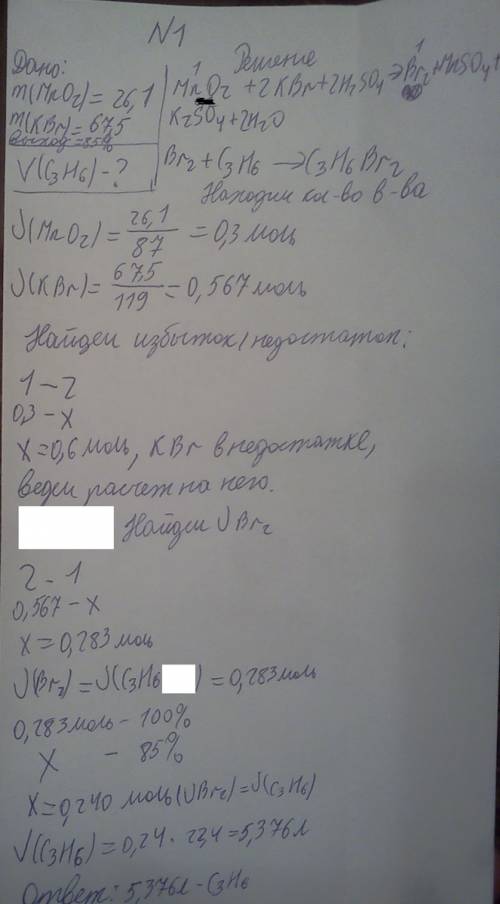 N1
Дано:
Решение
m(MnO₂)=26,1
m(KBr)=67,5
Выход =85%
V(C₃H₆)-?
MnO₂ +2KBr+2H₂SO₄→Br₂+MnSO₄+
1 1
K₂SO₄+2H₂O
Br₂+C₃H₆ →C₃H₆Br₂
Находим кол-во в-ва
ν(MnO₂)= 26,1/87 = 0,3 моль
ν(KBr)= 67,5/119 = 0,567 моль
Найдем избыток/недостаток:
1 – 2
0,3 – x
x=0,6 моль, KBr в недостатке,
ведем расчет на него.
Найдем νBr₂
2 - 1
0,567 – x
x=0,283 моль
ν(Br₂)=ν(C₃H₆ ) =0,283 моль
0,283 моль – 100%
x – 85%
x=0,240 моль(νBr₂)=ν(C₃H₆)
V(C₃H₆)=0,24 · 22,4=5,376л
Ответ: 5,376л - C₃H₆